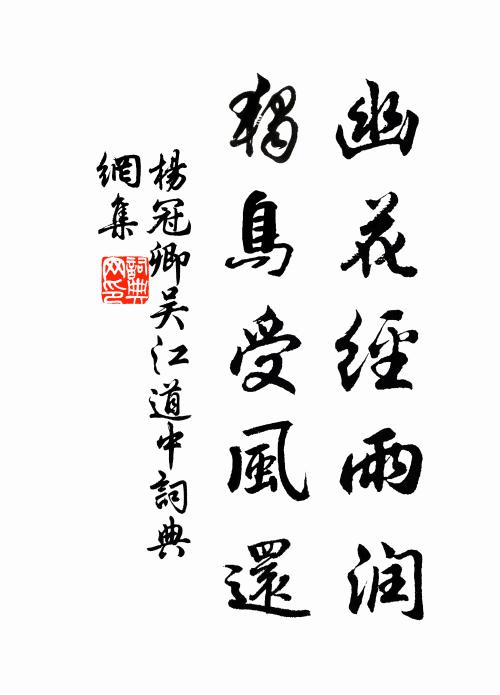 幽花經雨润
獨鳥受風還
楊冠卿吴江道中詞典
網集
詞典
网印